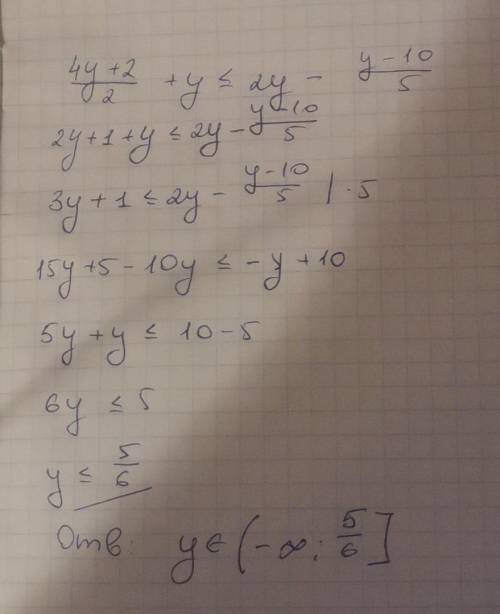 (4y+2)/2 + y ≤ 2y - (y-10)/5
2y+1+y ≤ 2y - (y-10)/5
3y+1 ≤ 2y - (y-10)/5 | ·5
15y+5-10y ≤ -y+10
5y+y ≤ 10-5
6y ≤ 5
y ≤ 5/6
Отв: y ∈ (-∞; 5/6]